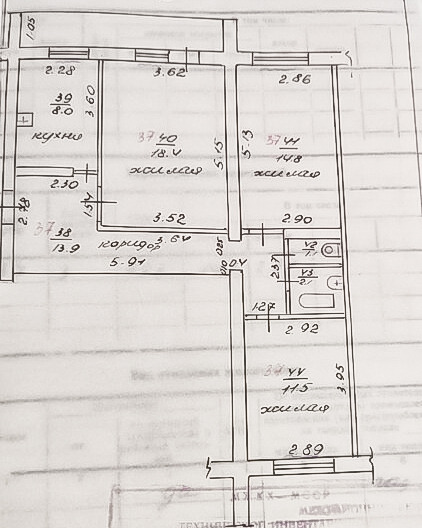 1.05
2.28
3.62
2.86
39
8.0
3.60
кухня
37
40
18.4
жилая
5.15
5.13
37
14.8
жилая
2.30
1.54
2.78
3.52
2.90
37
38
13.9
коридор
3.64
5.91
0.4
2.37
42
1.1
43
2.1
1.27
2.92
37
44
11.5
жилая
3.95
2.89
МЖКХ МССР